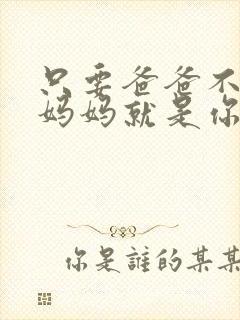 只要爸爸不
妈妈就是你
你是誰的某某